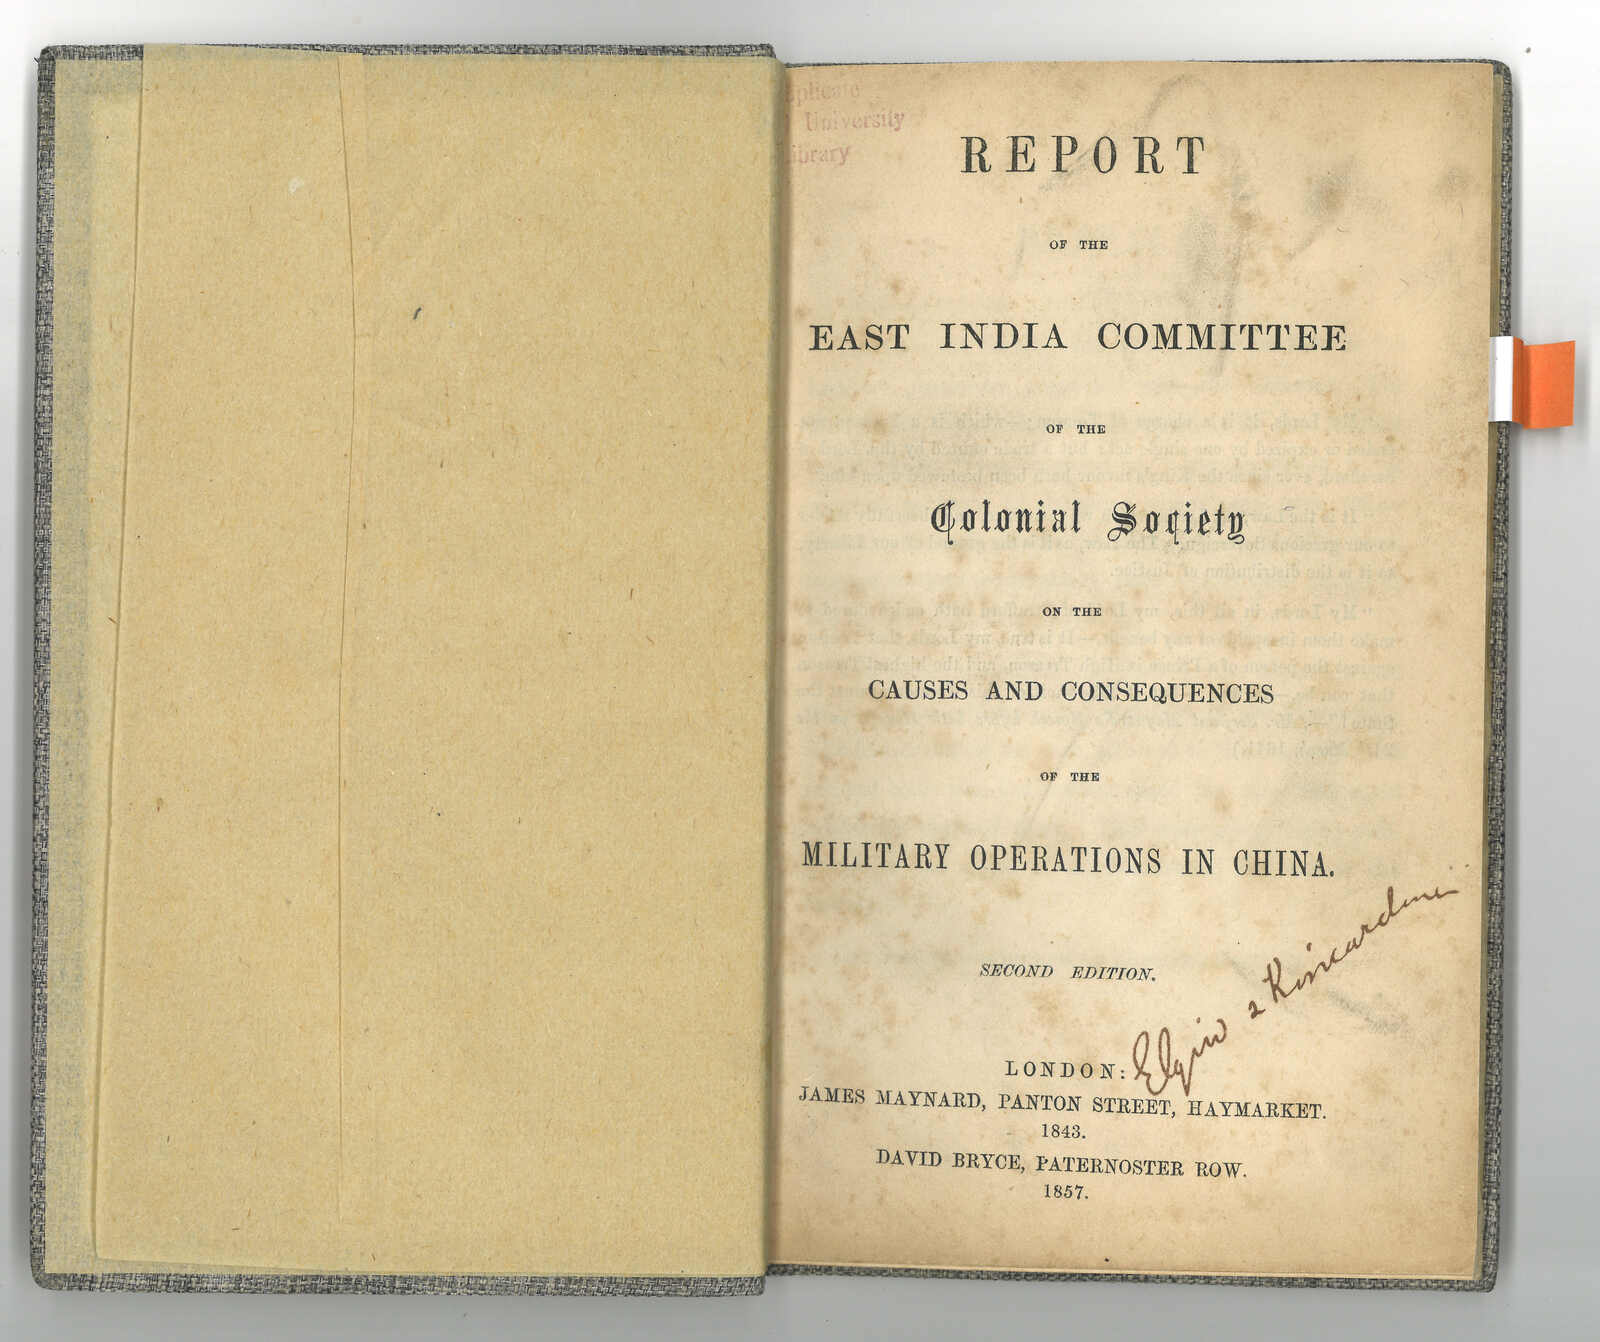 University
REPORT
OF THE
EAST INDIA COMMITTEE
OF THE
Colonial Society
ON THE
CAUSES AND CONSEQUENCES
OF THE
MILITARY OPERATIONS IN CHINA.
SECOND EDITION.
Elgin & Kincardine
LONDON:
JAMES MAYNARD, PANTON STREET, HAYMARKET.
1843.
DAVID BRYCE, PATERNOSTER ROW.
1857.